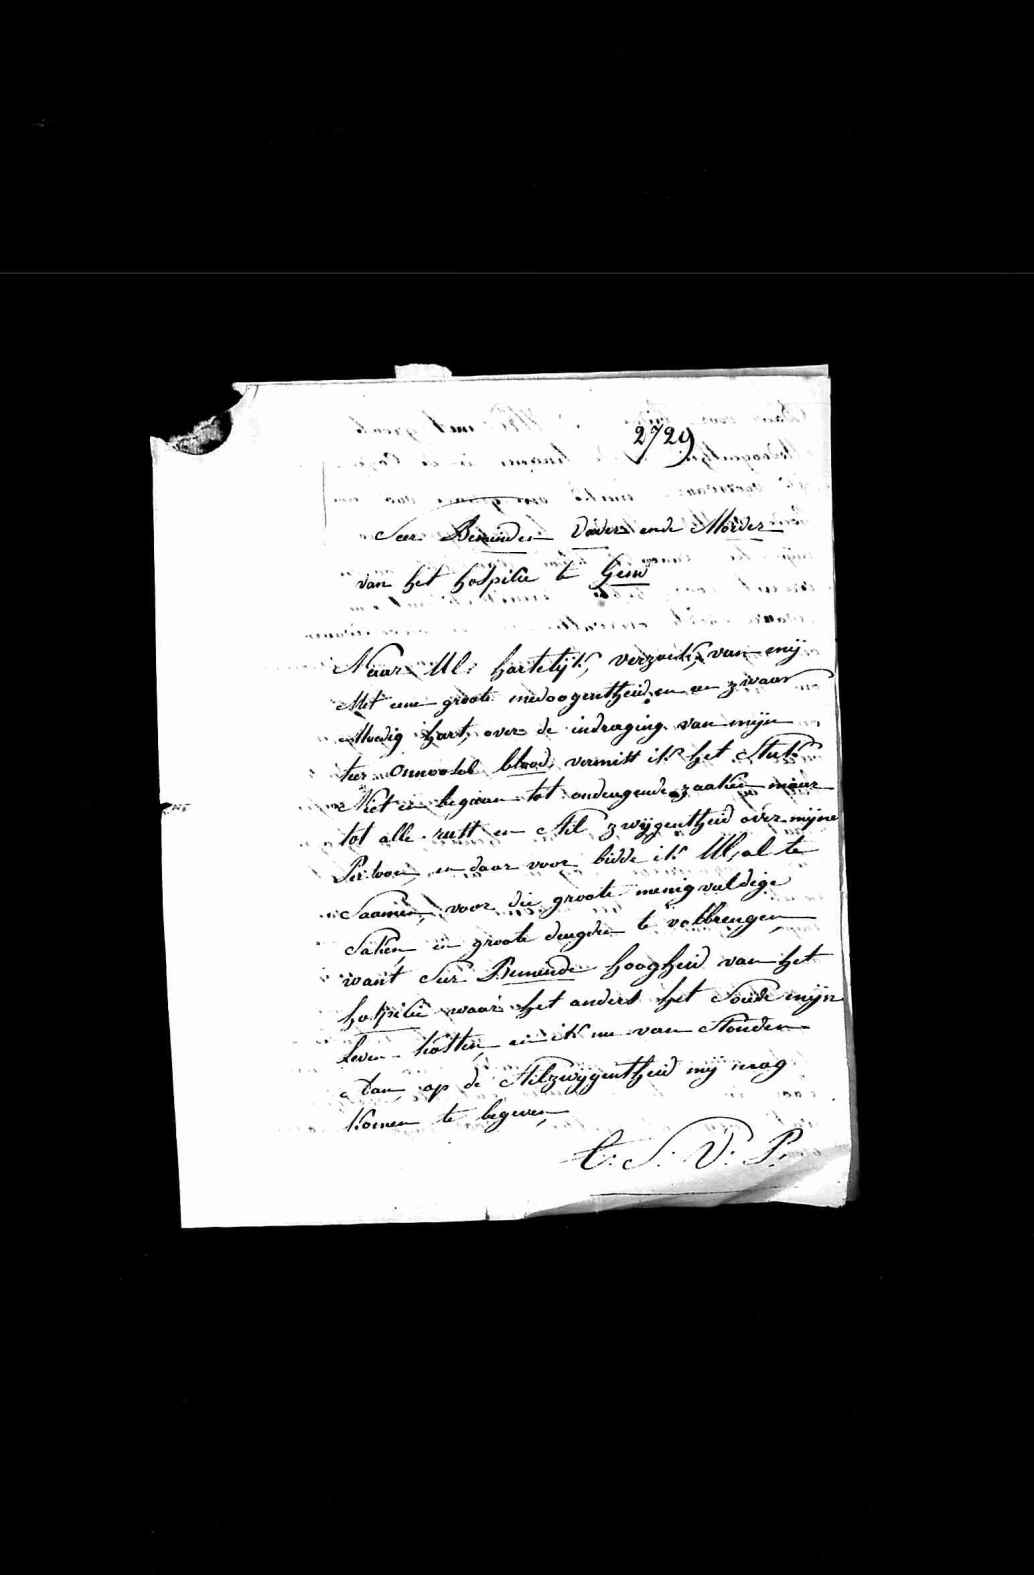 2729
Seer Beminden Vader ende Moeder
van het hospitie te Gend
Naar Ul: hartelijk, verzoek, van mij
Met eene groote medoogentheid, en een zwaar
Moedig hart, over de indraging van mijn
ter onnoosel bloed, vermitt ik het Stuk
Niet en begaan tot ondeugende zaaken maar
tot alle rust en Stil zwijgentheid over mijne
Persoon, en daar voor bidde ik Ul, al te
Saamen, voor die groote menigvuldige
Saken, en groote deugden te volbrengen,
want Seer Beminde hoogheid van het
hospitie waar het anders het Soude mijn
Leven kosten, en ik me van Stonden
aan, op de Stilzwijgentheid mij mag
komen te begeven,
T. S. V. P.